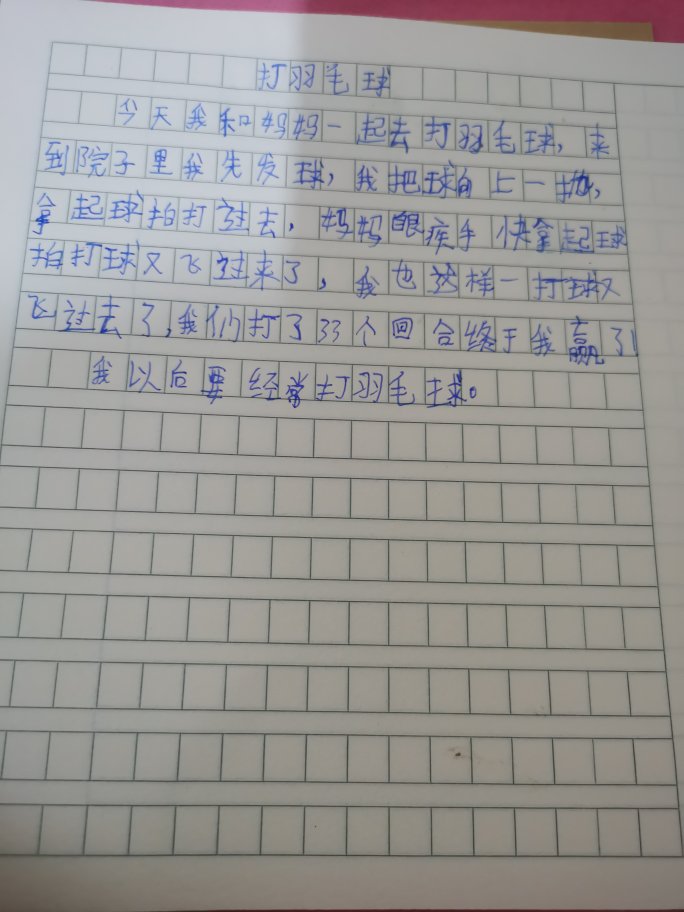 打羽毛球
今天我和妈妈一起去打羽毛球，来
到院子里我先发球，我把球向上一抛，
拿起球拍打过去，妈妈眼疾手快拿起球
拍打球又飞过来了，我也这样一打球又
飞过去了，我们打了33个回合终于我赢了！
我以后要经常打羽毛球。